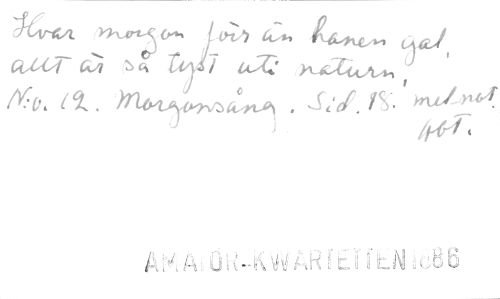 Hvar morgon förr än hanen gal,
allt är så tyst uti naturn,
N:o. 12. Morgonsång. Sid. 18. med not.
Abt.
AMATÖR-KWARTETTEN 1886